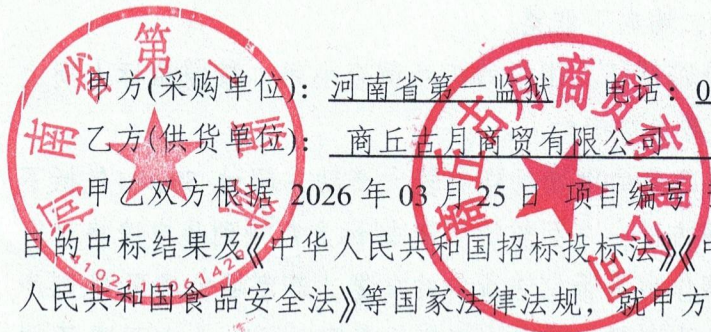 甲方(采购单位)：河南省第一监狱 电话：0
乙方(供货单位)：商丘古月商贸有限公司
甲乙双方根据 2026 年 03 月 25 日 项目编号
目的中标结果及《中华人民共和国招标投标法》《中
人民共和国食品安全法》等国家法律法规，就甲方
河南省第一监狱
商丘古月商贸有限公司